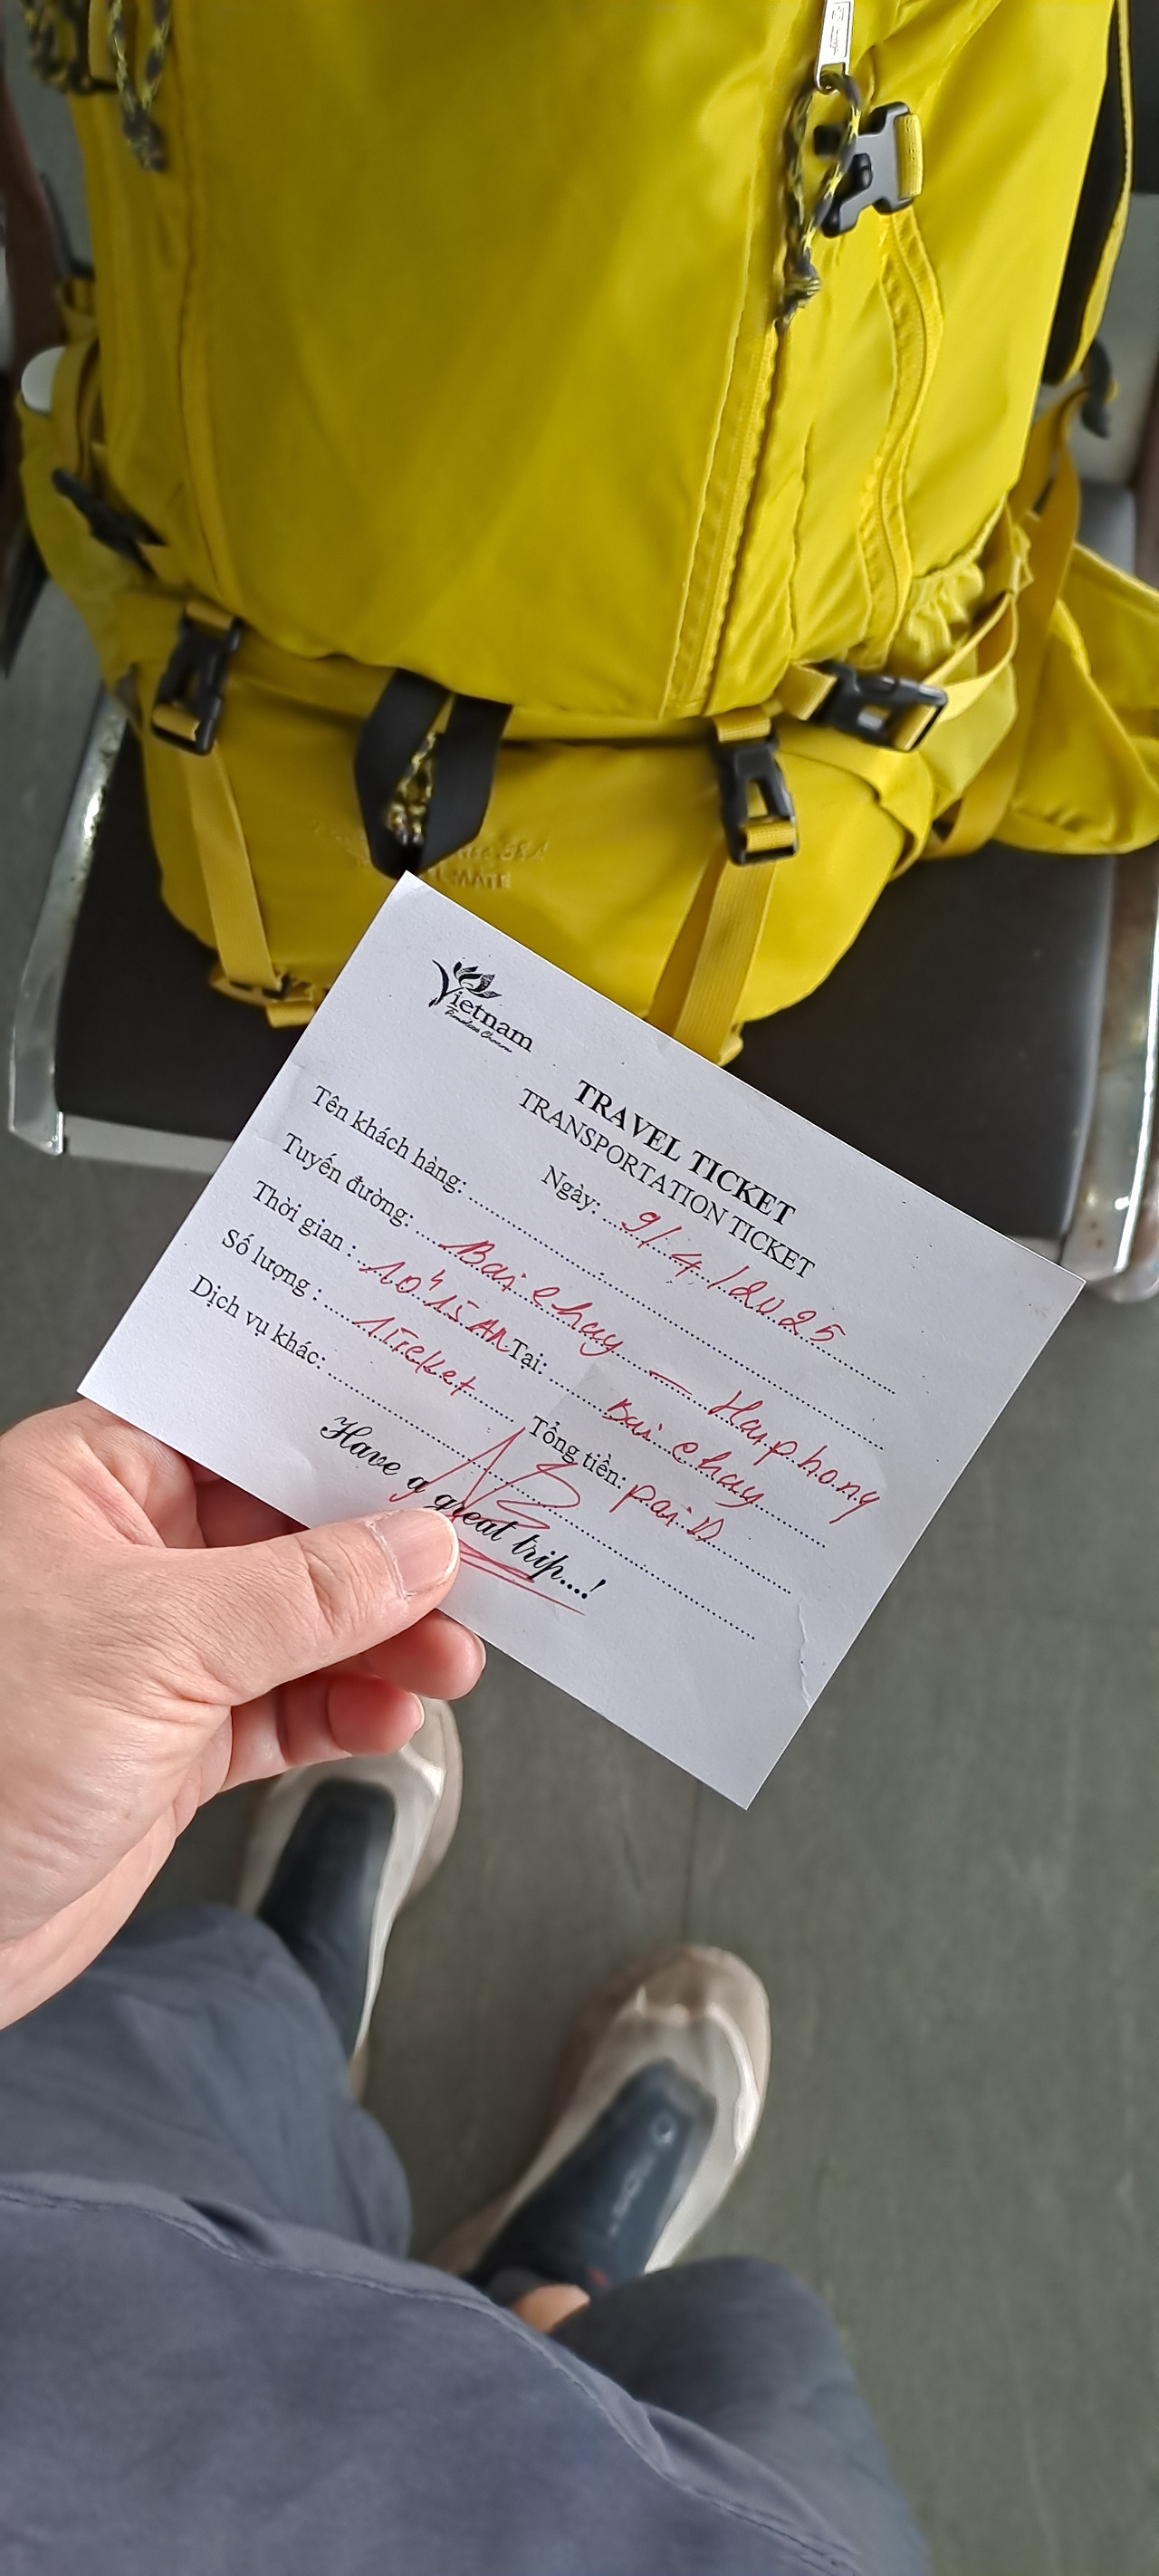 Vietnam
Timeless Charm
TRAVEL TICKET
TRANSPORTATION TICKET
Ngày: 9/4/2025
Tên khách hàng:
Tuyến đường: Bai chay — Haiphong
Thời gian : 10h15 AM Tại: Bai chay
Số lượng : 1 Ticket Tổng tiền: paiD
Dịch vụ khác:
Have a great trip...!